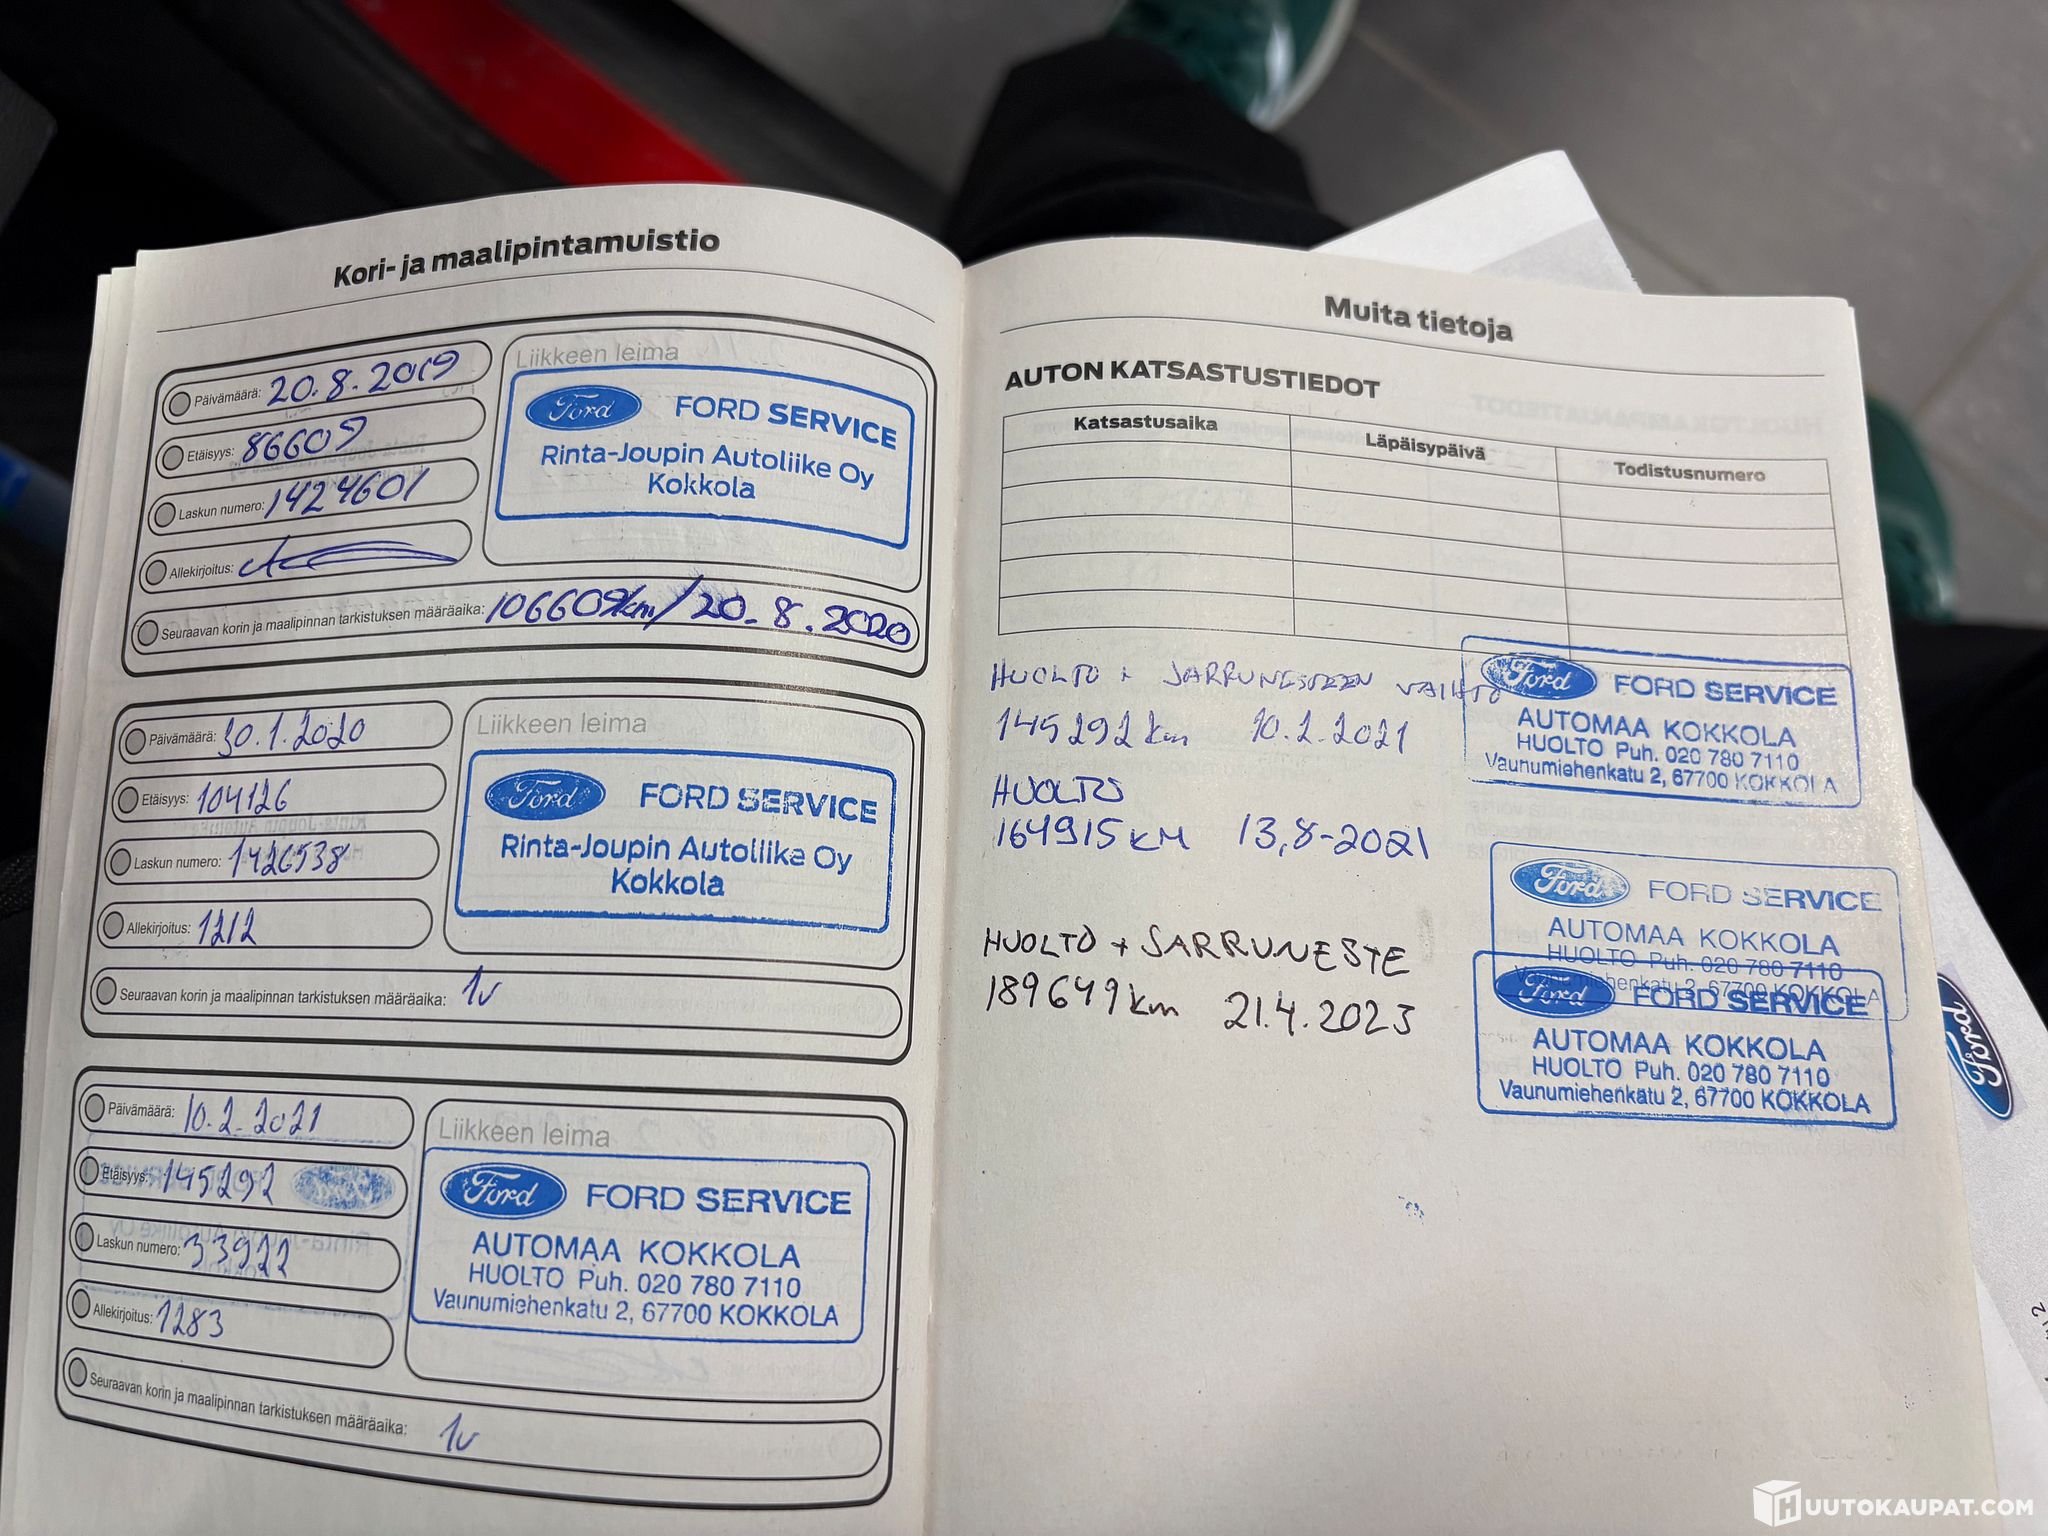 Kori- ja maalipintamuistio
Päivämäärä: 20.8.2019
Etäisyys: 86609
Laskun numero: 1424601
Allekirjoitus:
Seuraavan korin ja maalipinnan tarkistuksen määräaika: 106609km/20.8.2020
Liikkeen leima
Ford FORD SERVICE
Rinta-Joupin Autoliike Oy
Kokkola
Päivämäärä: 30.1.2020
Etäisyys: 104126
Laskun numero: 1426538
Allekirjoitus: 1212
Seuraavan korin ja maalipinnan tarkistuksen määräaika: 1v
Liikkeen leima
Ford FORD SERVICE
Rinta-Joupin Autoliike Oy
Kokkola
Päivämäärä: 10.2.2021
Etäisyys: 145292
Laskun numero: 33922
Allekirjoitus: 1283
Seuraavan korin ja maalipinnan tarkistuksen määräaika: 1v
Liikkeen leima
Ford FORD SERVICE
AUTOMAA KOKKOLA
HUOLTO Puh. 020 780 7110
Vaunumiehenkatu 2, 67700 KOKKOLA
Muita tietoja
AUTON KATSASTUSTIEDOT
Katsastusaika Läpäisypäivä Todistusnumero
HUOLTO + JARRUNESTEEN VAIHTO
145292km 10.2.2021
Ford FORD SERVICE
AUTOMAA KOKKOLA
HUOLTO Puh. 020 780 7110
Vaunumiehenkatu 2, 67700 KOKKOLA
HUOLTO
164915KM 13,8-2021
Ford FORD SERVICE
AUTOMAA KOKKOLA
HUOLTO Puh. 020 780 7110
Vaunumiehenkatu 2, 67700 KOKKOLA
HUOLTO + JARRUNESTE
189649km 21.4.2023
Ford FORD SERVICE
AUTOMAA KOKKOLA
HUOLTO Puh. 020 780 7110
Vaunumiehenkatu 2, 67700 KOKKOLA
Ford
HUUTOKAUPAT.COM